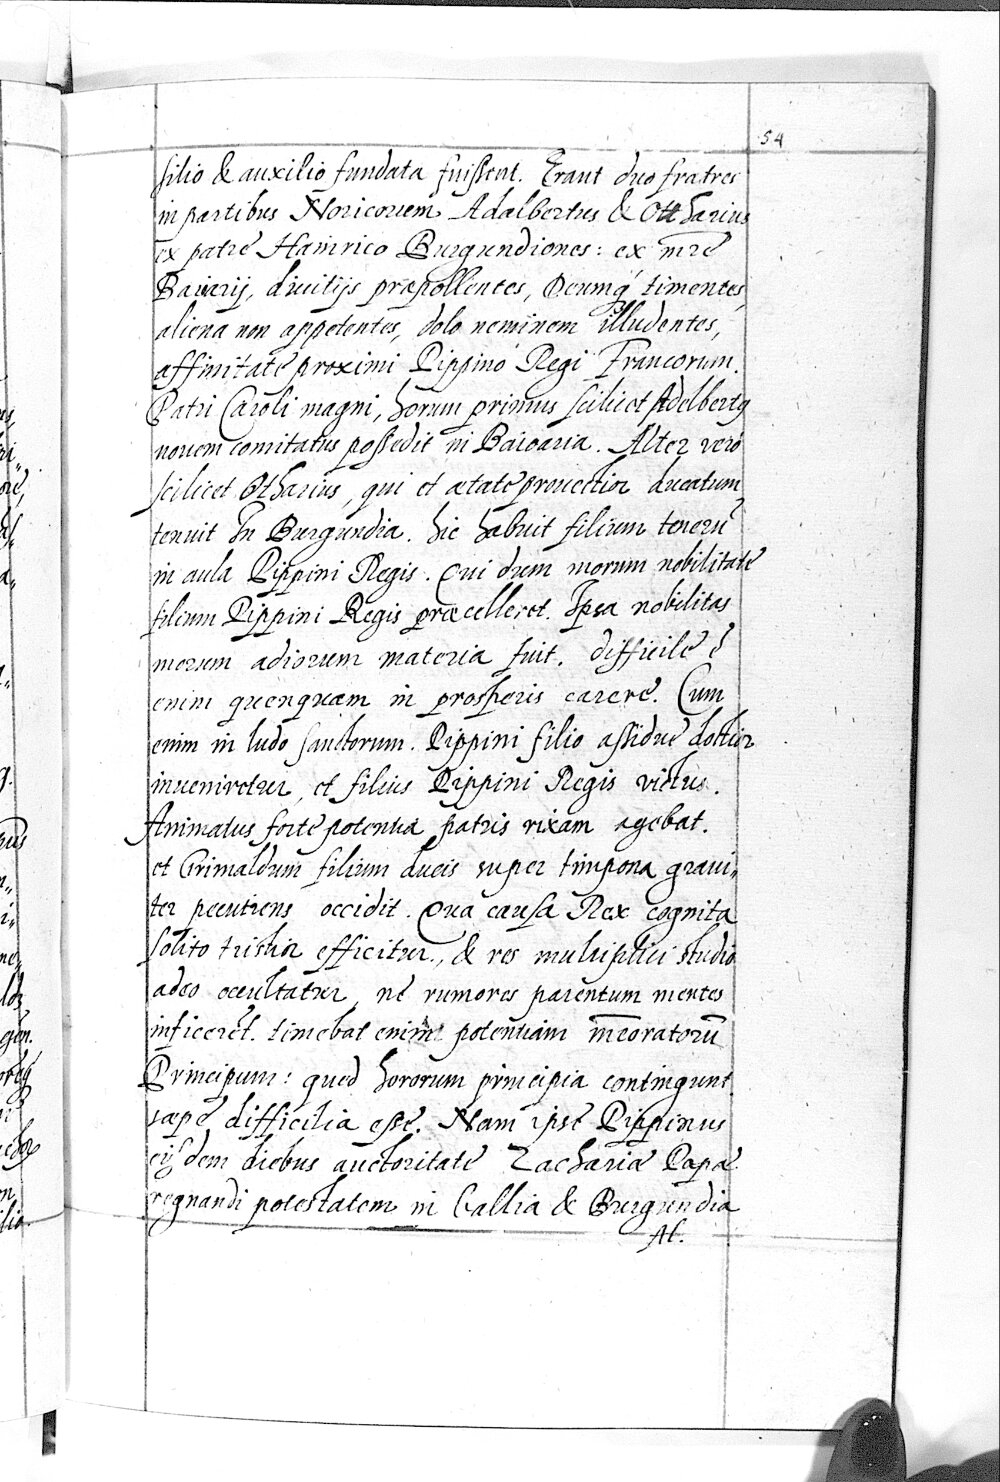 54
silio & auxilio fundata fuissent. Erant duo fratres
in partibus Noricorum Adalbertus & Ottharius
ex patre Hainrico Burgundiones: ex mr̃e
Bauarij, diuitijs præpollentes, Deumq́ timentes,
aliena non appetentes, dolo neminem illudentes,
affinitate proximi Pippino Regi Francorum.
Patri Caroli magni, horum primus scilicet Adelbertꝰ
nouem comitatus possedit in Baioaria. Alter vero
scilicet Otharius, qui et ætate prouectior ducatum
tenuit In Burgundia. hic habuit filium tenerũ
in aula Pippini Regis. Qui dum morum nobilitate
filium Pippini Regis præcelleret. Ipsa nobilitas
morum adiorum materia fuit. difficile ẽ
enim quenquam in prosperis carere. Cum
enim in ludo sanctorum. Pippini filio assidue doctior
inueniretur, et filius Pippini Regis victus.
Animatus forte potentia patris rixam agebat.
et Grimaldum filium ducis super timpona graui-
ter pecutiens occidit. Qua causa Rex cognita
solito tristior efficitur, & res multiplici studio
adeo occultatur, ne rumores parentum mentes
inficeret. timebat enim potentiam mẽoratorũ
Principum: quod hororum principia contingunt
sæpe difficilia esse. Nam ipse Pippinus
eijsdem diebus auctoritate Zachariæ Papæ
regnandi potestatem in Gallia & Burgundia
Al.